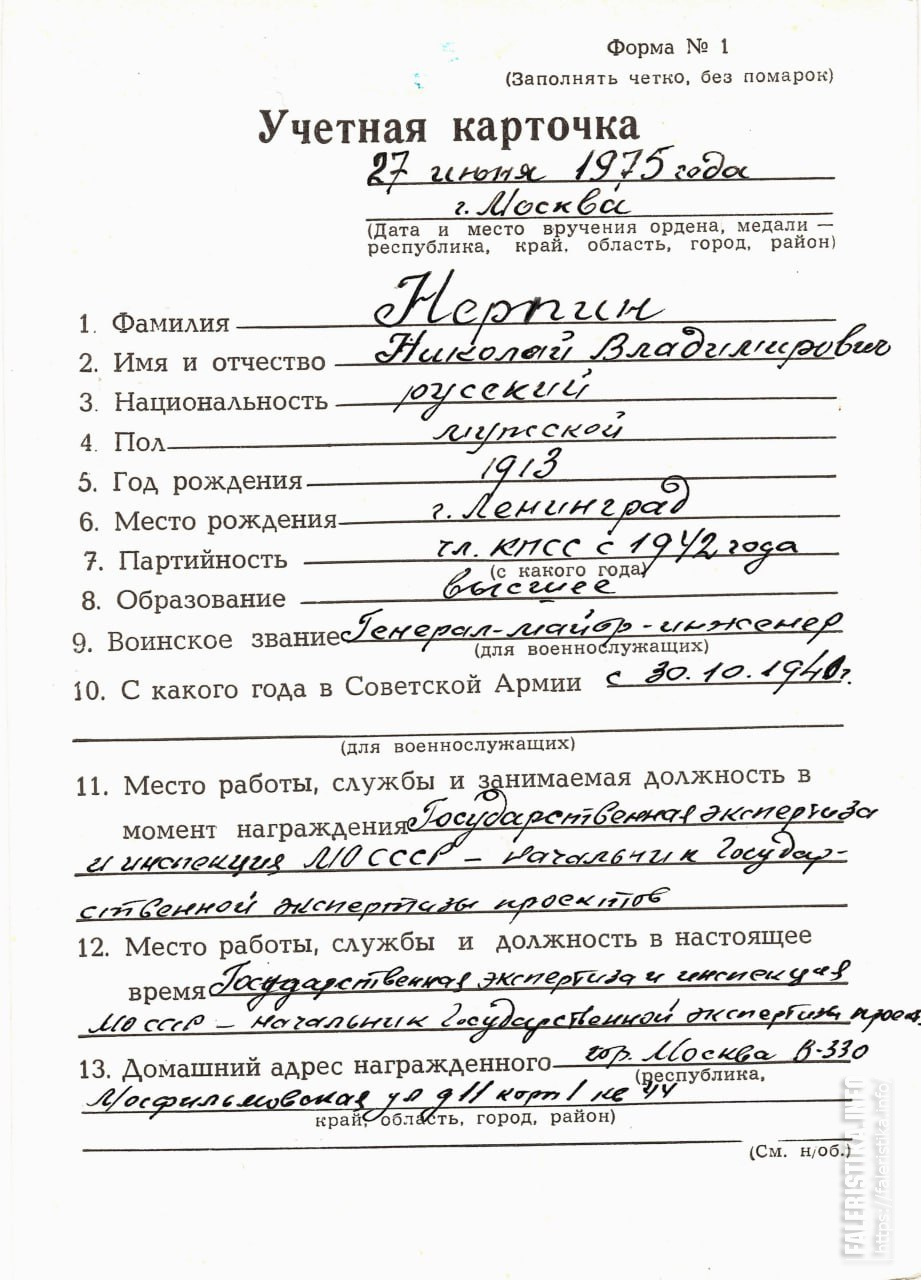 Форма № 1
(Заполнять четко, без помарок)
Учетная карточка
27 июня 1975 года
г. Москва
(Дата и место вручения ордена, медали —
республика, край, область, город, район)
1. Фамилия Нерпин
2. Имя и отчество Николай Владимирович
3. Национальность русский
4. Пол мужской
5. Год рождения 1913
6. Место рождения г. Ленинград
7. Партийность чл. КПСС с 1942 года
(с какого года)
8. Образование высшее
9. Воинское звание Генерал-майор-инженер
(для военнослужащих)
10. С какого года в Советской Армии с 30.10.1940г.
(для военнослужащих)
11. Место работы, службы и занимаемая должность в
момент награждения Государственная экспертиза
и инспекция МО СССР – начальник Государ-
ственной экспертизы проектов
12. Место работы, службы и должность в настоящее
время Государственная экспертиза и инспекция
МО СССР – начальник Государственной экспертизы проект.
13. Домашний адрес награжденного гор. Москва В-330
(республика,
Мосфильмовская ул д 11 корп 1 кв 44
край, область, город, район)
(См. н/об.)
FALERISTIKA.INFO
https://faleristika.info